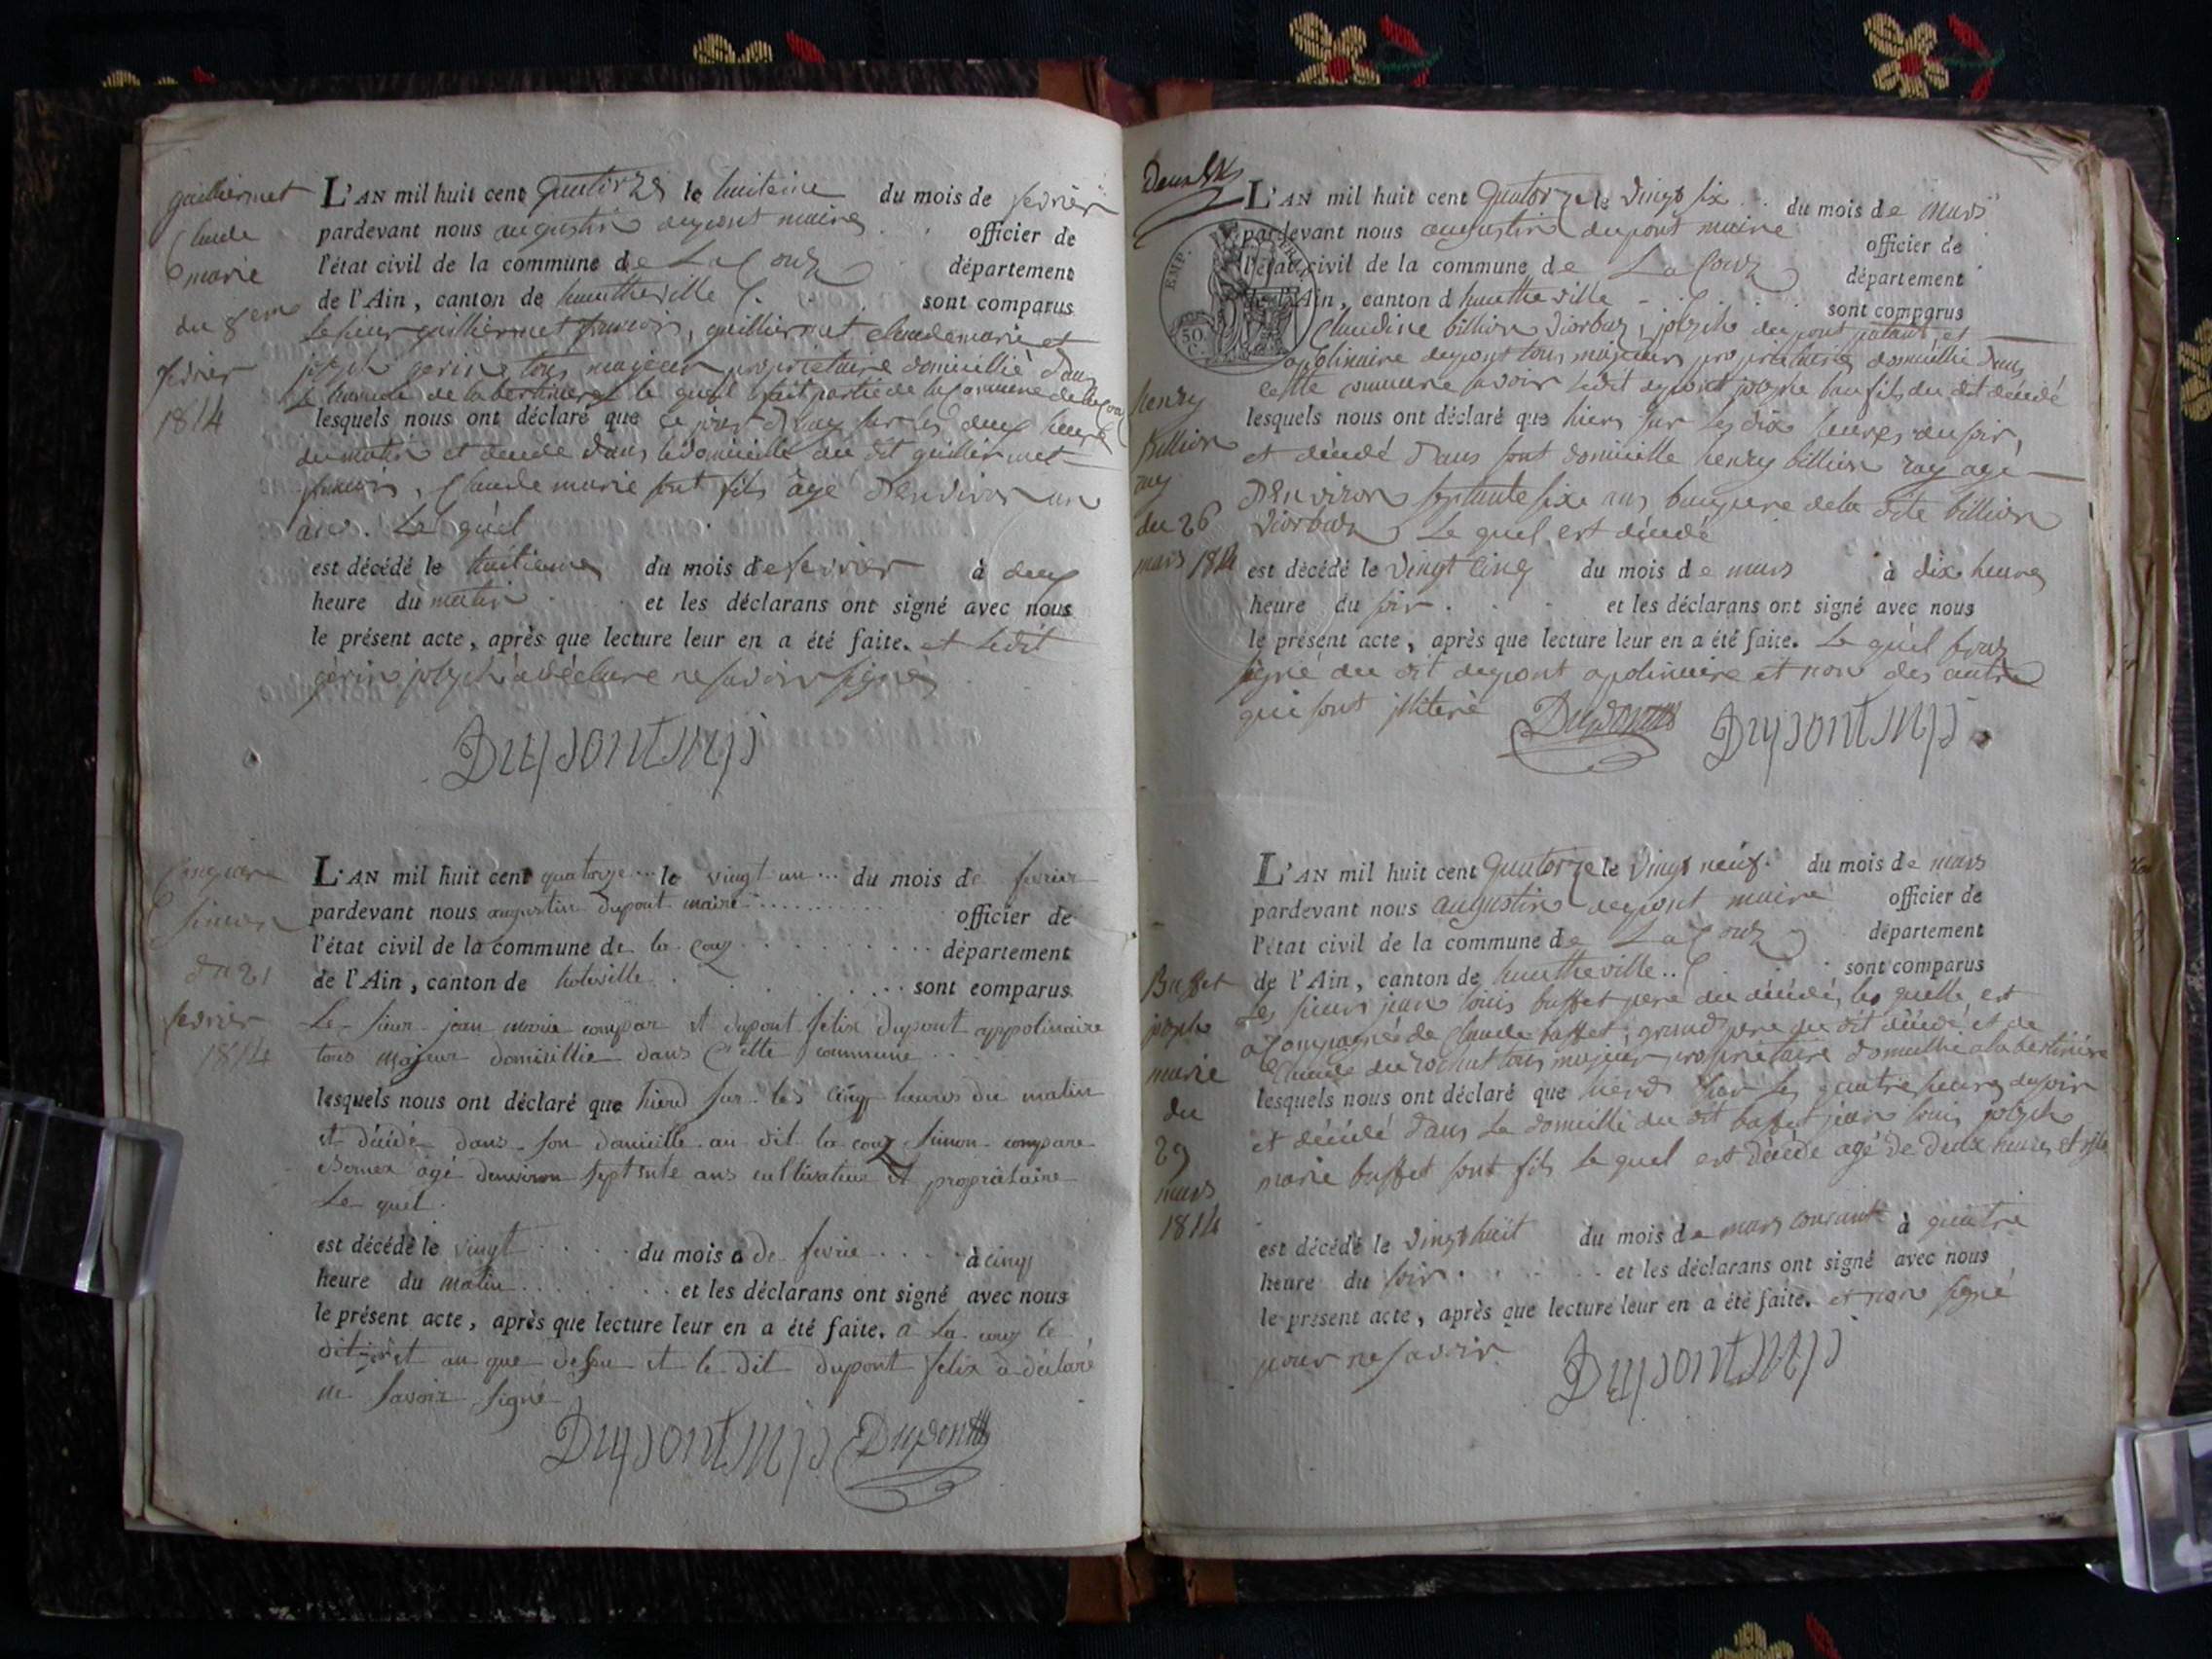 guilliermet
Claude
marie
du 8em
fevrier
1814
L'AN mil huit cent quatorze le huiteine du mois de fevrier
pardevant nous augustin dupont maire officier de
l'état civil de la commune de La Couz département
de l'Ain, canton de hautheville sont comparus
le sieur guilliermet francois, guilliermet claude marie et
joseph gerin tous majeur propriétaire domicillié dans
le hameau de la bertiniere le quel fait partie de la commune de la Couz
lesquels nous ont déclaré que ce jourd'huy sur les deux heure
du matin et décédé dans le domicille du dit guilliermet
francois, Claude marie sont fils âgé d'environ un
ans. Le quel
est décédé le huitieme du mois de fevrier à deux
heure du matin et les déclarans ont signé avec nous
le présent acte, après que lecture leur en a été faite. et ledit
gerin joseph a déclare ne savoir signé
Dupont
Compare
Simon
du 21
fevrier
1814
L'AN mil huit cent quatorze le vingt un du mois de fevrier
pardevant nous augustin dupont maire officier de
l'état civil de la commune de la couz département
de l'Ain, canton de hoteville sont comparus
Le sieur jean marie compar et dupont felix dupont appolinaire
tous majeur domicillie dans cette commune
lesquels nous ont déclaré que hierd sur les cinq heures du matin
et décédé dans son domicille au dit la couz Simon compare
agé denviron septente ans cultivateur et propriétaire
Le quel
est décédé le vingt du mois de fevrie à cinq
heure du matin et les déclarans ont signé avec nous
le présent acte, après que lecture leur en a été faite. a La couz le
dit jour et an que dessu et le dit dupont felix a déclaré
ne savoir signé
Dupont Dupont
L'AN mil huit cent quatorze le vingt six du mois de mars
pardevant nous augustin dupont maire officier de
l'état civil de la commune de La Couz département
de l'Ain, canton d hautheville sont comparus
EMP.
50
C.
henry
billion
ray
du 26
mars 1814
Claudine billion, joseph dupont et
apolinaire dupont tous majeurs propriétaires domicillié dans
cette commune savoir ledit dupont joseph beau fils du dit décédé
lesquels nous ont déclaré que hiers sur les dix heures du soir,
et décédé dans sont domicille henry billion ray agé
d'environ septante six ans beaupere de la dite billion
Le quel est décédé
est décédé le vingt cinq du mois de mars à dix heures
heure du soir et les déclarans ont signé avec nous
le présent acte, après que lecture leur en a été faite. Le quel
signé du dit dupont apolinaire et non des autre
qui sont illiteré Dupont Dupont
Buffet
joseph
marie
du
29
mars
1814
L'AN mil huit cent quatorze le vingt neuf du mois de mars
pardevant nous augustin dupont maire officier de
l'état civil de la commune de La Couz département
de l'Ain, canton de hautheville sont comparus
Les sieurs jean louis buffet pere du décédé, les quelle est
acompagné de Claude buffet, grand pere du dit décédé et de
Claude tous majeur propriétaire domicillié a la bertiniere
lesquels nous ont déclaré que hierd sur les quatre heures du soir
et décédé dans le domicille du dit buffet jean louis joseph
marie buffet sont fils le quel est décédé agé de deux heures et
est décédé le vingt huit du mois de mars courant à quatre
heure du soir et les déclarans ont signé avec nous
le présent acte, après que lecture leur en a été faite. et non signé
pour ne savoir Dupont